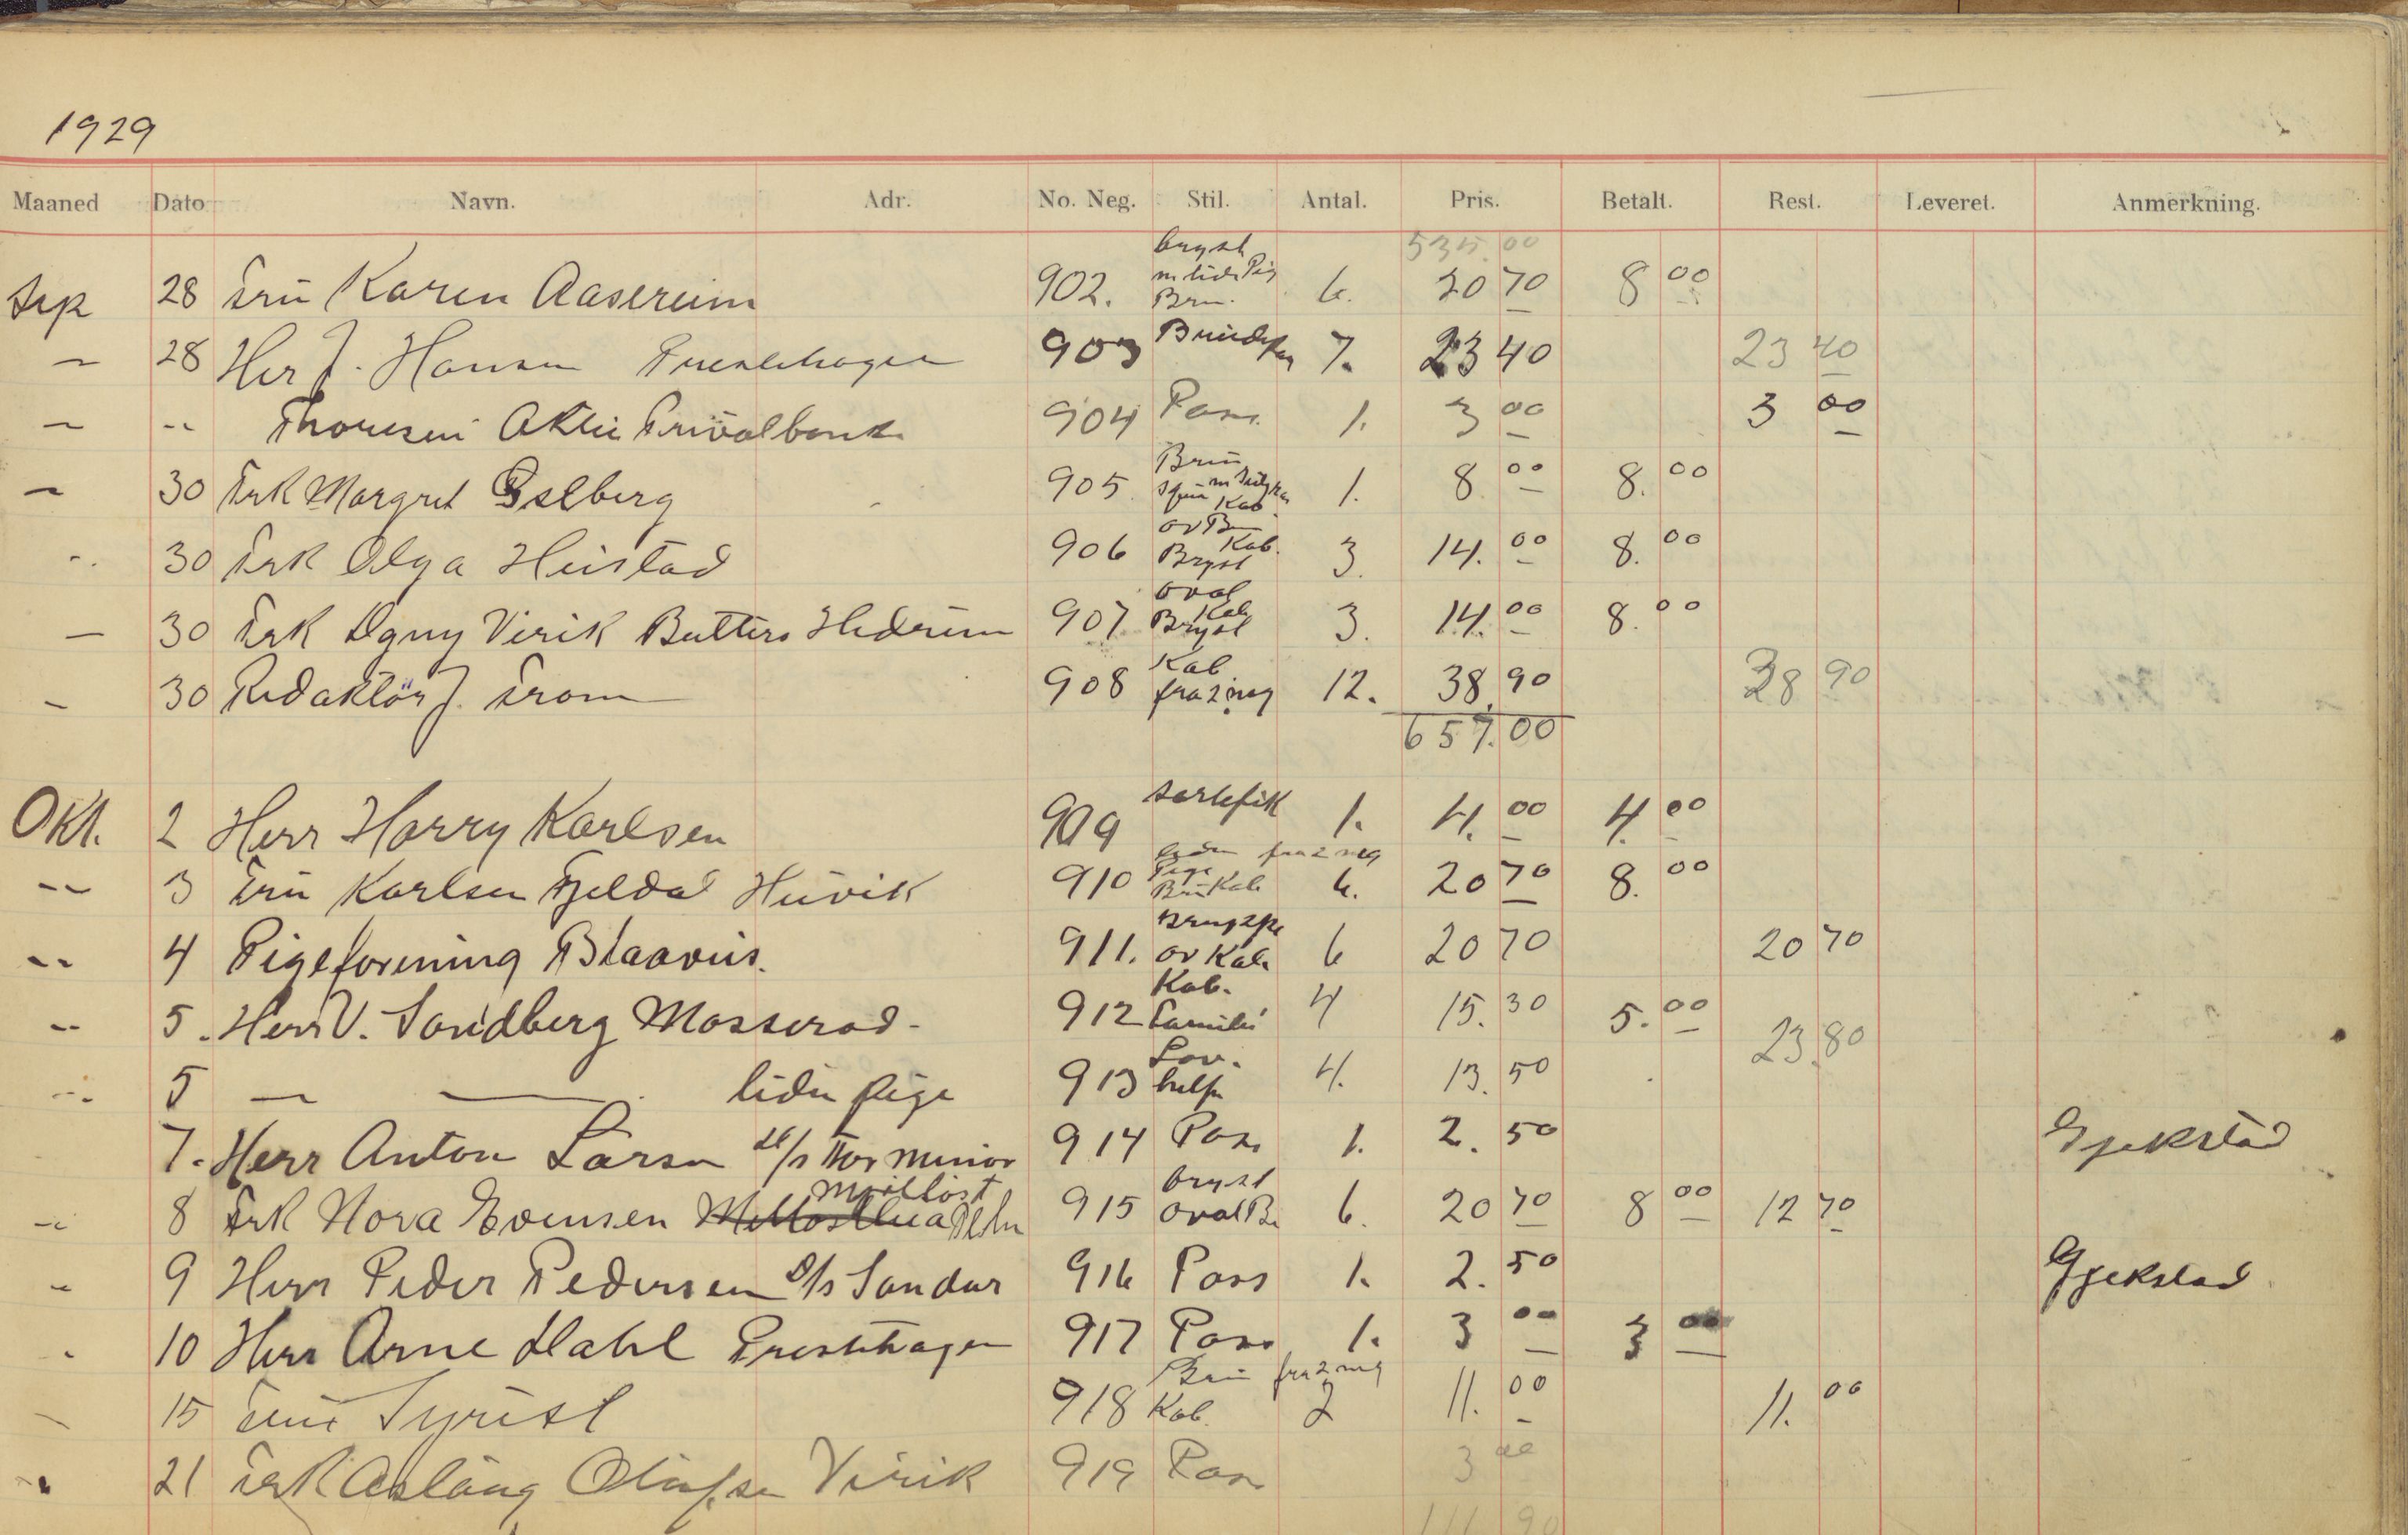 1929
Maaned Dato Navn. Adr. No. Neg. Stil. Antal. Pris. Betalt. Rest. Leveret. Anmerkning.
535.00
Sep 28 Fru Karen Aasereim 902. bryst m lide Pig Brun. 6. 20 70 8 00
— 28 Herr J. Hansen Presthagen 903 7. 23 40 23 40
— -- Thoresen Aktie Privatbank 904 Pass. 1. 3 00 3 00
— 30 Frk Margret Gselberg 905 Brun Kab. 1. 8 00 8. 00
-- 30 Frk Olga Heistad 906 ov B Kab. Bryst 3. 14. 00 8. 00
— 30 Frk Dgny Virik Butters Hedrum 907 oval Kab Bryst 3. 14. 00 8. 00
— 30 Redaktör J. From 908 Kab fra 2 neg 12. 38. 90 38 90
657.00
Okt. 2 Herr Harry Karlsen 909 1. 4. 00 4. 00
-- 3 Fru Karlsen Fjeldal Huvik 910 liden fra 2 neg Pige Brun Kab 6. 20 70 8. 00
-- 4 Pigeforening Blaaveis. 911. ov Kab 6 20 70 20 70
-- 5. Herr V. Sandberg Mosserod- 912 Kab. Familie 4 15. 30 5. 00
23.80
-- 5 — — liden pige 913 4. 13. 50
7. Herr Anton Larsen s/s Thor minor 914 Pass 1. 2. 50 Gjekstad
-- 8 Frk Nora Evensen Mellöst 915 bryst Oval Br 6. 20 70 8 00 12 70
- 9 Herr Peder Pedersen s/s Sandar 916 Pass 1. 2. 50 Gjekstad
- 10 Herr Arne Dahl Presthagen 917 Pass 1. 3 00 3 00
— 15 Fru Syrist 918 Brun fra 2 neg Kab. 2 11. 00 11. 00
-- 21 Frk Aslaug Olafsen Virik 919 Pass 3 00
111 90